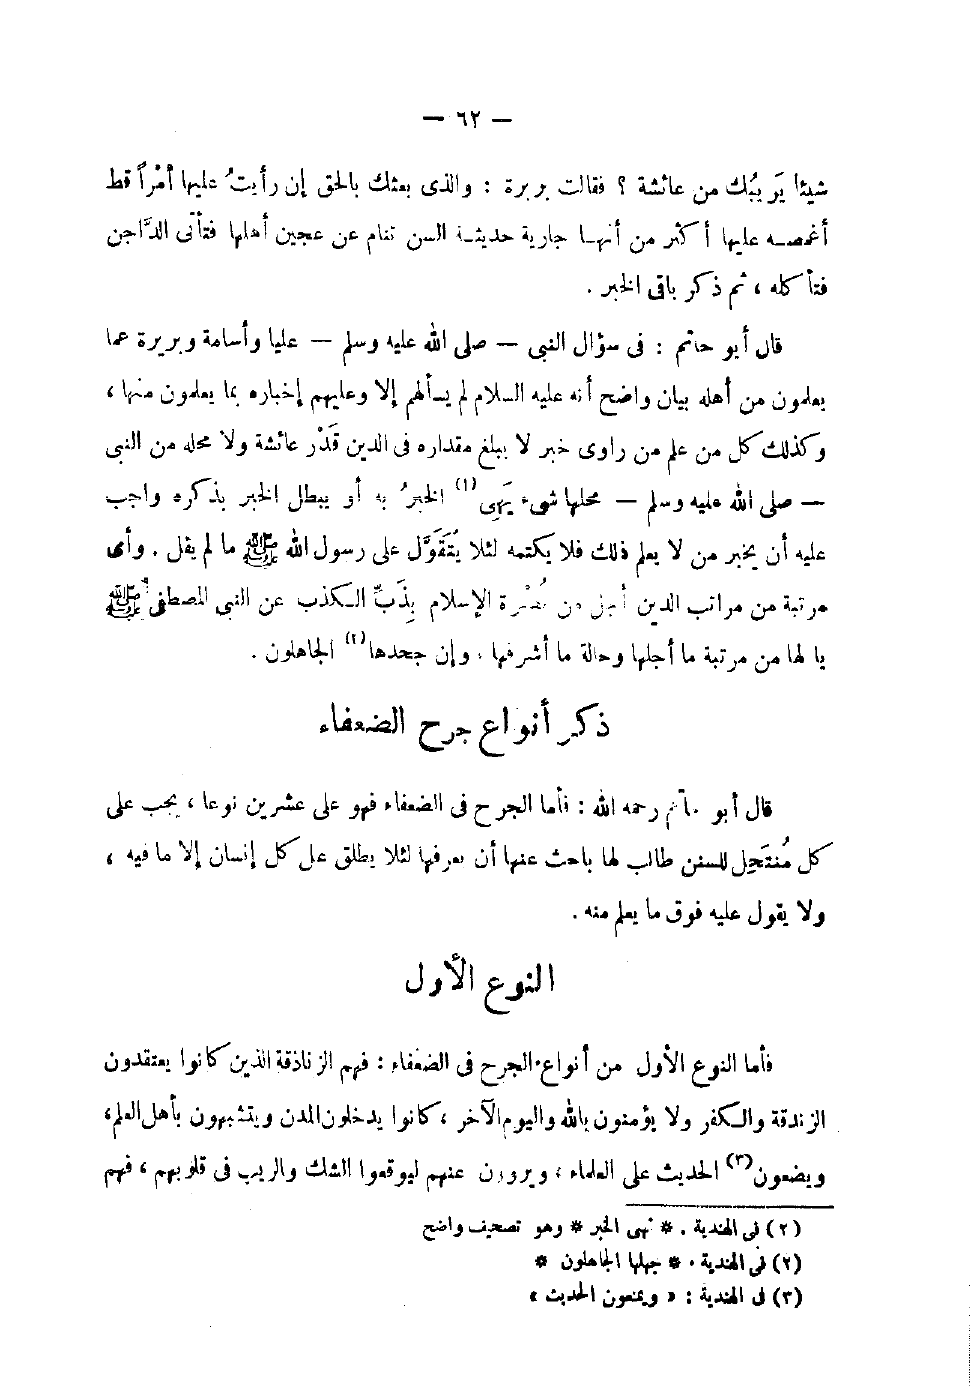 — ٦٢ —
شيئا يَريبُك من عائشة ؟ فقالت بريرة : والذى بعثك بالحق إن رأيتُ عليها أمْراً قط
أغمصه عليها أكثر من أنها جارية حديثة السن تنام عن عجين أهلها فتأتى الدَّاجن
فتأكله ، ثم ذكر باقى الخبر .
قال أبو حاتم : فى سؤال النبى — صلى الله عليه وسلم — عليا وأسامة وبريرة عما
يعلمون من أهله بيان واضح أنه عليه السلام لم يسألهم إلا وعليهم إخباره بما يعلمون منها ،
وكذلك كل من علم من راوى خبر لا يبلغ مقداره فى الدين قَدْر عائشة ولا محله من النبى
— صلى الله عليه وسلم — محلها شىء يَهِى(١) الخبرُ به أو يبطل الخبر بذكره واجب
عليه أن يخبر من لا يعلم ذلك فلا يكتمه لئلا يُتَقَوَّل على رسول الله ﷺ ما لم يقل . وأى
مرتبة من مراتب الدين أجل من نُصْرة الإسلام بِذَبِّ الكذب عن النبى المصطفى ﷺ
يا لها من مرتبة ما أجلها وحالة ما أشرفها ، وإن جحدها(٢) الجاهلون .
ذكر أنواع جرح الضعفاء
قال أبو حاتم رحمه الله : فأما الجرح فى الضعفاء فهو على عشرين نوعا ، يجب على
كل مُنتَحِل للسنن طالب لها باحث عنها أن يعرفها لئلا يطلق على كل إنسان إلا ما فيه ،
ولا يقول عليه فوق ما يعلم منه .
النوع الأول
فأما النوع الأول من أنواع الجرح فى الضعفاء : فهم الزناذقة الذين كانوا يعتقدون
الزندقة والكفر ولا يؤمنون بالله واليوم الآخر ، كانوا يدخلون المدن ويتشبهون بأهل العلم،
ويضعون(٣) الحديث على العلماء ، ويروون عنهم ليوقعوا الشك والريب فى قلوبهم ، فهم
(٢) فى الهندية . * نهى الخبر * وهو تصحيف واضح
(٢) فى الهندية . * جهلها الجاهلون *
(٣) فى الهندية : « ويمنعون الحديث »